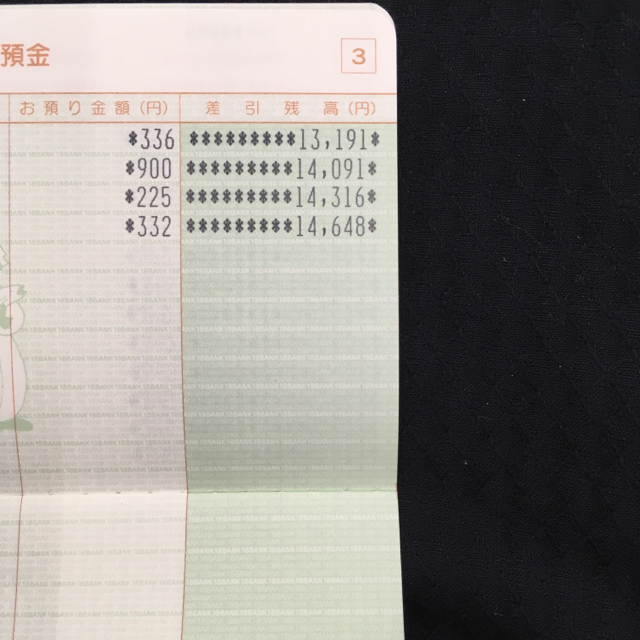 預金
3
お預り金額(円) 差引残高(円)
*336 *********13,191*
*900 *********14,091*
*225 *********14,316*
*332 *********14,648*